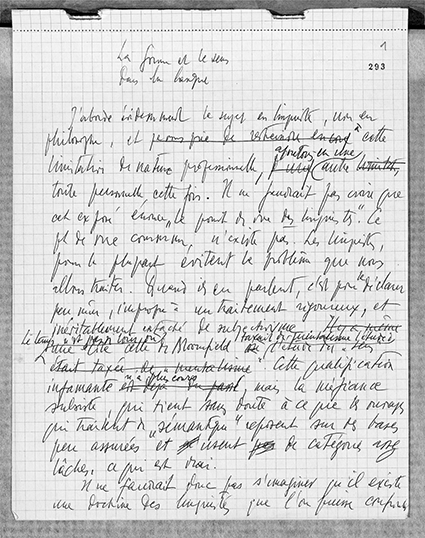 1
293
La forme et le sens
dans la langue
J'aborde évidemment le sujet en linguiste, non en
philosophe, et à cette
limitation de nature professionnelle, ajoutons en une autre
toute personnelle cette fois. Il ne faudrait pas croire que
cet exposé énonce "le point de vue des linguistes". Ce
pt de vue commun, n'existe pas. Les linguistes,
pour la plupart évitent le problème que nous
allons traiter. Quand ils en parlent, c'est pour le déclarer
peu mûr, impropre à un traitement rigoureux, et
inévitablement entaché de subjectivisme. Il y a même
Le temps n'est pas si loin où
une école celle de Bloomfield l'étude du sens
étant taxée de "mentalisme". Cette qualification
infamante n'a plus cours, mais la méfiance
subsiste, qui tient sans doute à ce que les ouvrages
qui traitent de "sémantique" reposent sur des bases
peu assurées et usent de catégories
lâches. ce qui est vrai.
Il ne faudrait donc pas s'imaginer qu'il existe
une doctrine des linguistes que l'on puisse